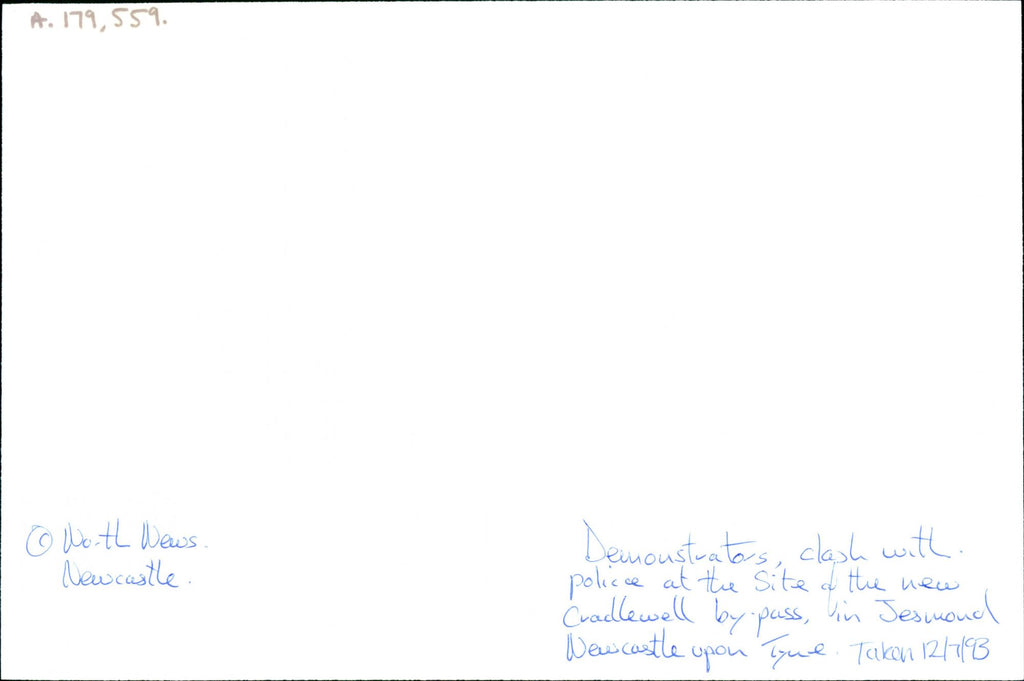 A. 179,559.
© North News.
Newcastle.
Demonstrators, clash with.
police at the Site of the new
Cradlewell by-pass, in Jesmond
Newcastle upon Tyne. Taken 12/7/93